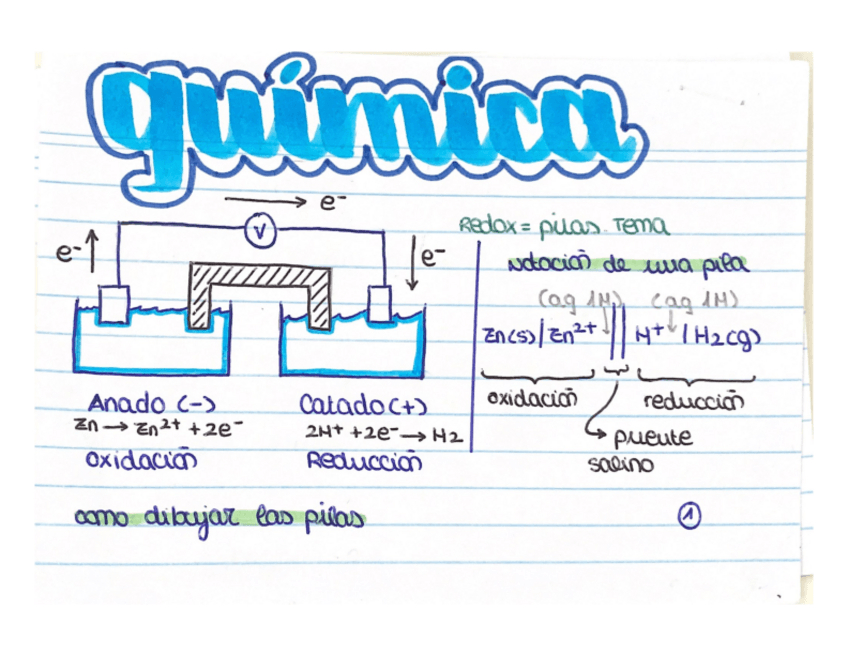 química
e-
V
e-
e-
Anado (-)
Zn → Zn2+ + 2e-
oxidación
Catado (+)
2H+ + 2e- → H2
Reducción
Redox = pilas Tema
Notación de una pila
(aq 1M) (aq 1M)
Zn(s) | Zn2+ || H+ | H2(g)
oxidación
reducción
puente
salino
como dibujar las pilas
1